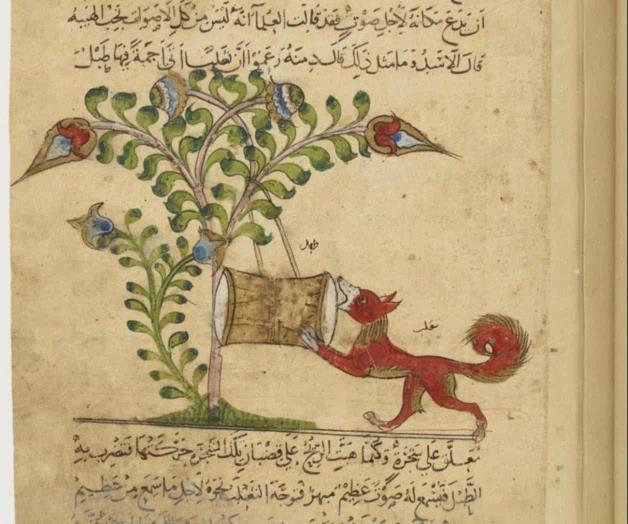 ان يدع مكانه لاجل صوت فقد قالت العلما انه ليس من كل الاصوات تجب الهيبه
قال الاسد وما مثل ذلك قال دمنه زعموا ان ثعلبا اتى اجمة فيها طبل
طبل
ثعلب
معلق على شجرة وكلما هبت الريح على قضبان تلك الشجرة حركتها فتضرب به
الطبل فيسمع له صوت عظيم فتوجه الثعلب نحوه لاجل ما سمع من عظيم